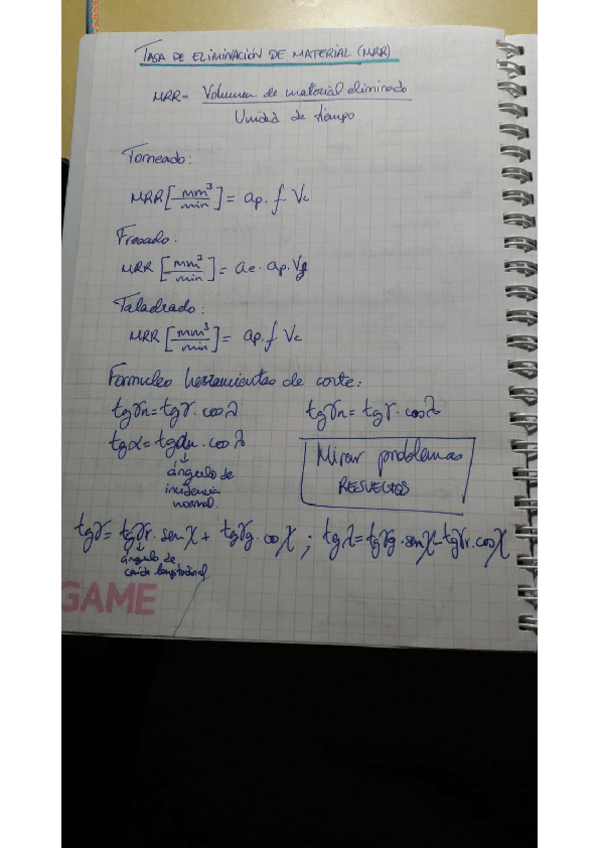 TASA DE ELIMINACIÓN DE MATERIAL (MRR)
MRR = Volumen de material eliminado / Unidad de tiempo
Torneado:
MRR [mm³/min] = ap · f · Vc
Fresado.
MRR [mm³/min] = ae · ap · Vf
Taladrado:
MRR [mm³/min] = ap · f · Vc
Formuleo herramientas de corte:
tgγn = tgγ · cosλ tgγn = tgγ · cosλ
tgα = tgαn · cosλ
ángulo de
incidencia
normal.
Mirar problemas
RESUELTOS
tgγ = tgγr · senχ + tgγg · cosχ ; tgλ = tgγg · senχ - tgγr · cosχ
ángulo de
caída longitudinal
GAME